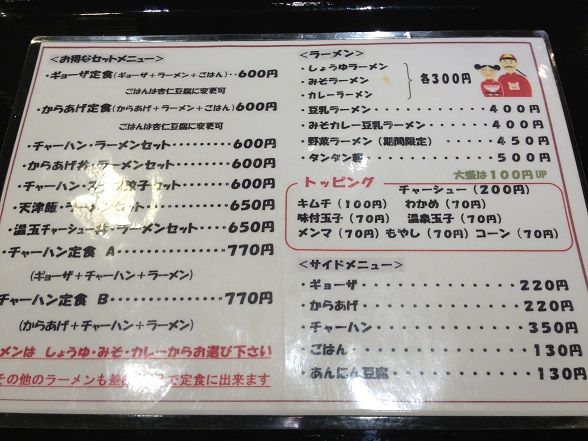 <お得なセットメニュー>
・ギョーザ定食(ギョーザ+ラーメン+ごはん)‥600円
ごはんは杏仁豆腐に変更可
・からあげ定食(からあげ+ラーメン+ごはん)600円
ごはんは杏仁豆腐に変更可
・チャーハン・ラーメンセット・・・・・・・600円
・からあげ丼・ラーメンセット・・・・・・・600円
・チャーハン・ 餃子セット・・・・・・・600円
・天津飯・ラーメンセット・・・・・・・650円
・温玉チャーシュー丼・ラーメンセット・・650円
・チャーハン定食 A・・・・・・・・・・・・770円
(ギョーザ+チャーハン+ラーメン)
チャーハン定食 B・・・・・・・・・・・・770円
(からあげ+チャーハン+ラーメン)
メンは しょうゆ・みそ・カレーからお選び下さい
その他のラーメンも で定食に出来ます
<ラーメン>
・しょうゆラーメン
・みそラーメン
・カレーラーメン
各300円
・豆乳ラーメン・・・・・・・・・400円
・みそカレー豆乳ラーメン・・・・400円
・野菜ラーメン(期間限定)・・・・450円
・タンタン麺・・・・・・・・・・500円
大盛は100円UP
トッピング
チャーシュー(200円)
キムチ(100円) わかめ(70円)
味付玉子(70円) 温泉玉子(70円)
メンマ(70円)もやし(70円)コーン(70円)
<サイドメニュー>
・ギョーザ・・・・・・・・・・・・220円
・からあげ・・・・・・・・・・・・220円
・チャーハン・・・・・・・・・・・350円
・ごはん・・・・・・・・・・・・・130円
・あんにん豆腐・・・・・・・・・・130円